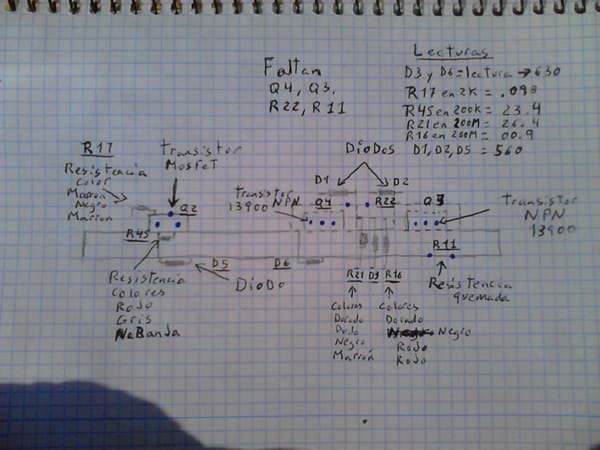 Lecturas
D3 y D6 = lectura → 630
R17 en 2K = .098
R45 en 200k = 23.4
R21 en 200M = 26.4
R16 en 200M = 00.9
D1, D2, D5 = 560
Faltan
Q4, Q3,
R22, R11
R17
Resistencia
Color
Marron
Negro
Marron
Transistor
MosFeT
Q2
R45
Resistencia
Colores
Rojo
Gris
NaBanda
D5
DioDo
D6
DioDos
D1
D2
Transistor
NPN
13900
Q4
R22
Q3
Transistor
NPN
13900
R11
Resistencia
quemada
R21
D3
R16
Colores
Dorado
Negro
Marrón
Colores
Dorado
Negro
Rojo
Rojo